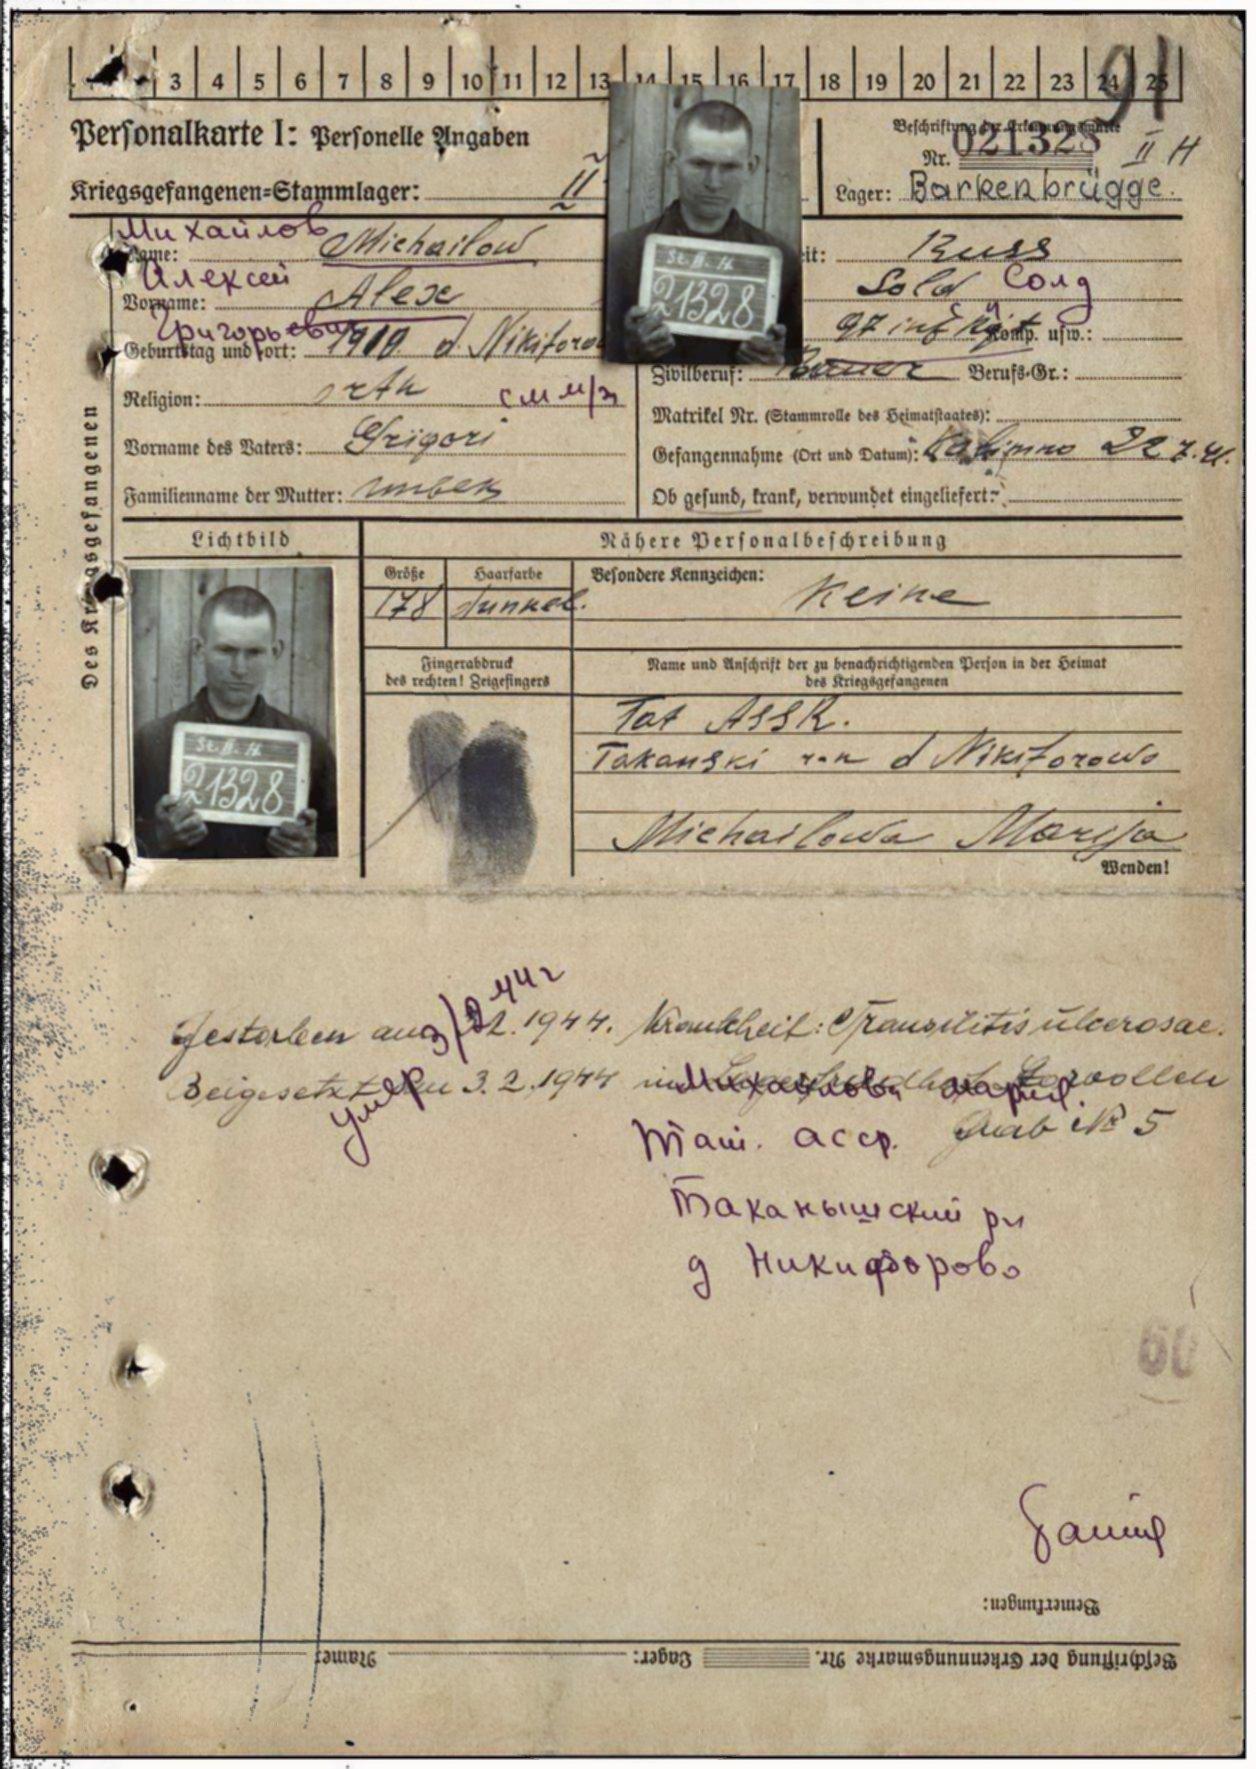 3 4 5 6 7 8 9 10 11 12 13 14 15 16 17 18 19 20 21 22 23 24 25
91
Personalkarte I: Personelle Angaben
Kriegsgefangenen=Stammlager: II
Beschriftung der Erkennungsmarke
Nr. 021328 II H
Lager: Barkenbrügge.
Des Kriegsgefangenen
Михайлов
Name: Michailow
Алексей
Vorname: Alex
Григорьевич
Geburtstag und =ort: 1910 d Nikiforowo
Religion: orth
см н/з
Vorname des Vaters: Grigori
Familienname der Mutter: unbek
Russ
Sold Солд
97 inf Rgt Komp. usw.:
Zivilberuf: Bauer Berufs=Gr.:
Matrikel Nr. (Stammrolle des Heimatstaates):
Gefangennahme (Ort und Datum): 22 7.41.
Ob gesund, krank, verwundet eingeliefert:
St. II. H
21328
Lichtbild
Nähere Personalbeschreibung
Größe Haarfarbe Besondere Kennzeichen:
178 dunkel. Keine
Fingerabdruck
des rechten! Zeigefingers
Name und Anschrift der zu benachrichtigenden Person in der Heimat
des Kriegsgefangenen
Tat ASSR.
Takanski d Nikiforowo
Michailowa Marija
Wenden!
St. II. H
21328
умер 3/2 44г
Gestorben am 2.1944. Krankheit:
Beigesetzt den 3.2.1944 im
Grab № 5
Михайлова Мария.
Тат. асср.
Таканышский рн
д Никифорово
60
Bemerkungen:
Beschriftung der Erkennungsmarke Nr. Lager: Name: